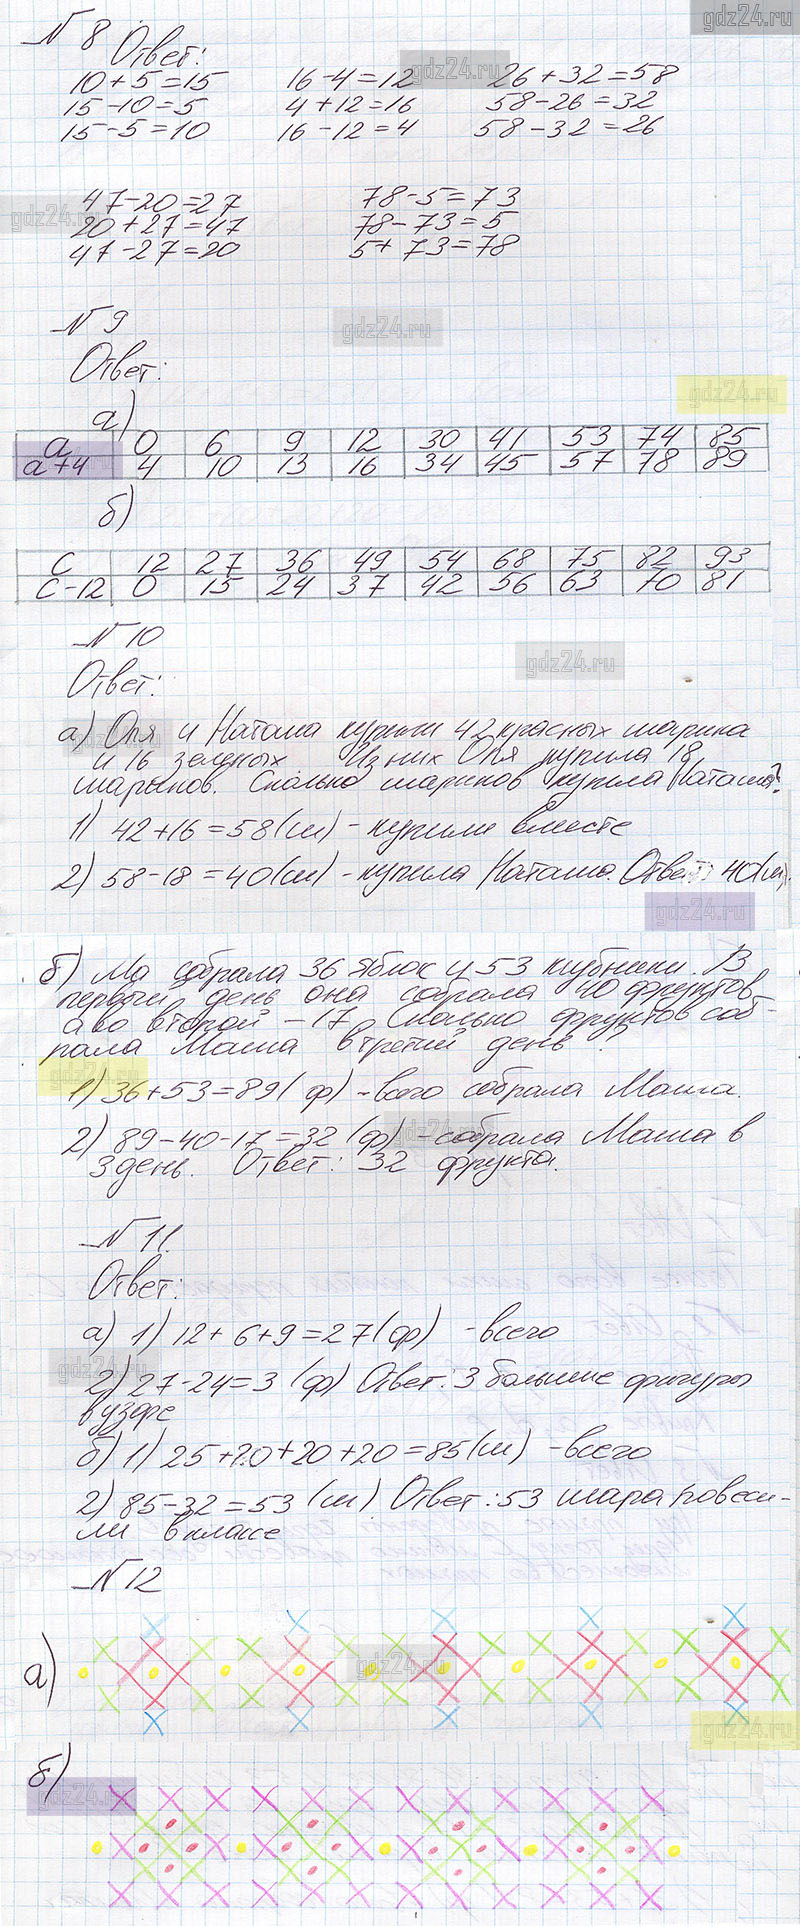 gdz24.ru
№ 8 Ответ:
10+5=15 16-4=12 26+32=58
15-10=5 4+12=16 58-26=32
15-5=10 16-12=4 58-32=26
47-20=27 78-5=73
20+27=47 78-73=5
47-27=20 5+73=78
№ 9
Ответ:
а)
а 0 6 9 12 30 41 53 74 85
а+4 4 10 13 16 34 45 57 78 89
б)
с 12 27 36 49 54 68 75 82 93
с-12 0 15 24 37 42 56 63 70 81
№ 10
Ответ:
а) Оля и Наташа купили 42 красных шарика
и 16 зеленых Из них Оля купила 18
шариков. Сколько шариков купила Наташа?
1) 42+16=58(ш) - купили вместе
2) 58-18=40(ш) - купила Наташа. Ответ: 40(ш).
б) Ма собрала 36 яблок и 53 клубники. В
первый день она собрала 40 фруктов,
а во второй - 17. Сколько фруктов соб-
рала Маша в третий день?
1) 36+53=89(ф) - всего собрала Маша.
2) 89-40-17=32(ф) - собрала Маша в
3 день. Ответ: 32 фрукта.
№ 11.
Ответ:
а) 1) 12+6+9=27(ф) - всего
2) 27-24=3 (ф) Ответ: 3 большие фигуры
в узоре
б) 1) 25+20+20+20=85(ш) - всего
2) 85-32=53(ш) Ответ: 53 шара повеси-
ли в классе
№ 12
а)
б)